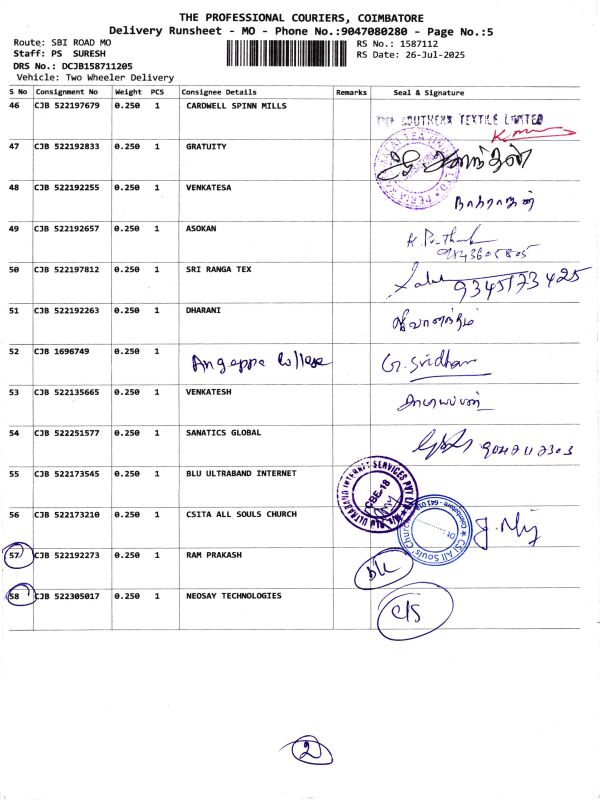 THE PROFESSIONAL COURIERS, COIMBATORE
Delivery Runsheet - MO - Phone No.:9047080280 - Page No.:5
Route: SBI ROAD MO RS No.: 1587112
Staff: PS SURESH RS Date: 26-Jul-2025
DRS No.: DCJB158711205
Vehicle: Two Wheeler Delivery
S No Consignment No Weight PCS Consignee Details Remarks Seal & Signature
46 CJB 522197679 0.250 1 CARDWELL SPINN MILLS
SOUTHERN TEXTILE LIMITED
47 CJB 522192833 0.250 1 GRATUITY
48 CJB 522192255 0.250 1 VENKATESA
49 CJB 522192657 0.250 1 ASOKAN
9843605805
50 CJB 522197812 0.250 1 SRI RANGA TEX
9345173425
51 CJB 522192263 0.250 1 DHARANI
52 CJB 1696749 0.250 1 Angappa College G. Sridhar
53 CJB 522135665 0.250 1 VENKATESH
54 CJB 522251577 0.250 1 SANATICS GLOBAL
55 CJB 522173545 0.250 1 BLU ULTRABAND INTERNET
CBE-18
56 CJB 522173210 0.250 1 CSITA ALL SOULS CHURCH
CSI All Souls' Church
57 CJB 522192273 0.250 1 RAM PRAKASH D/L
58 CJB 522305017 0.250 1 NEOSAY TECHNOLOGIES C/S
2